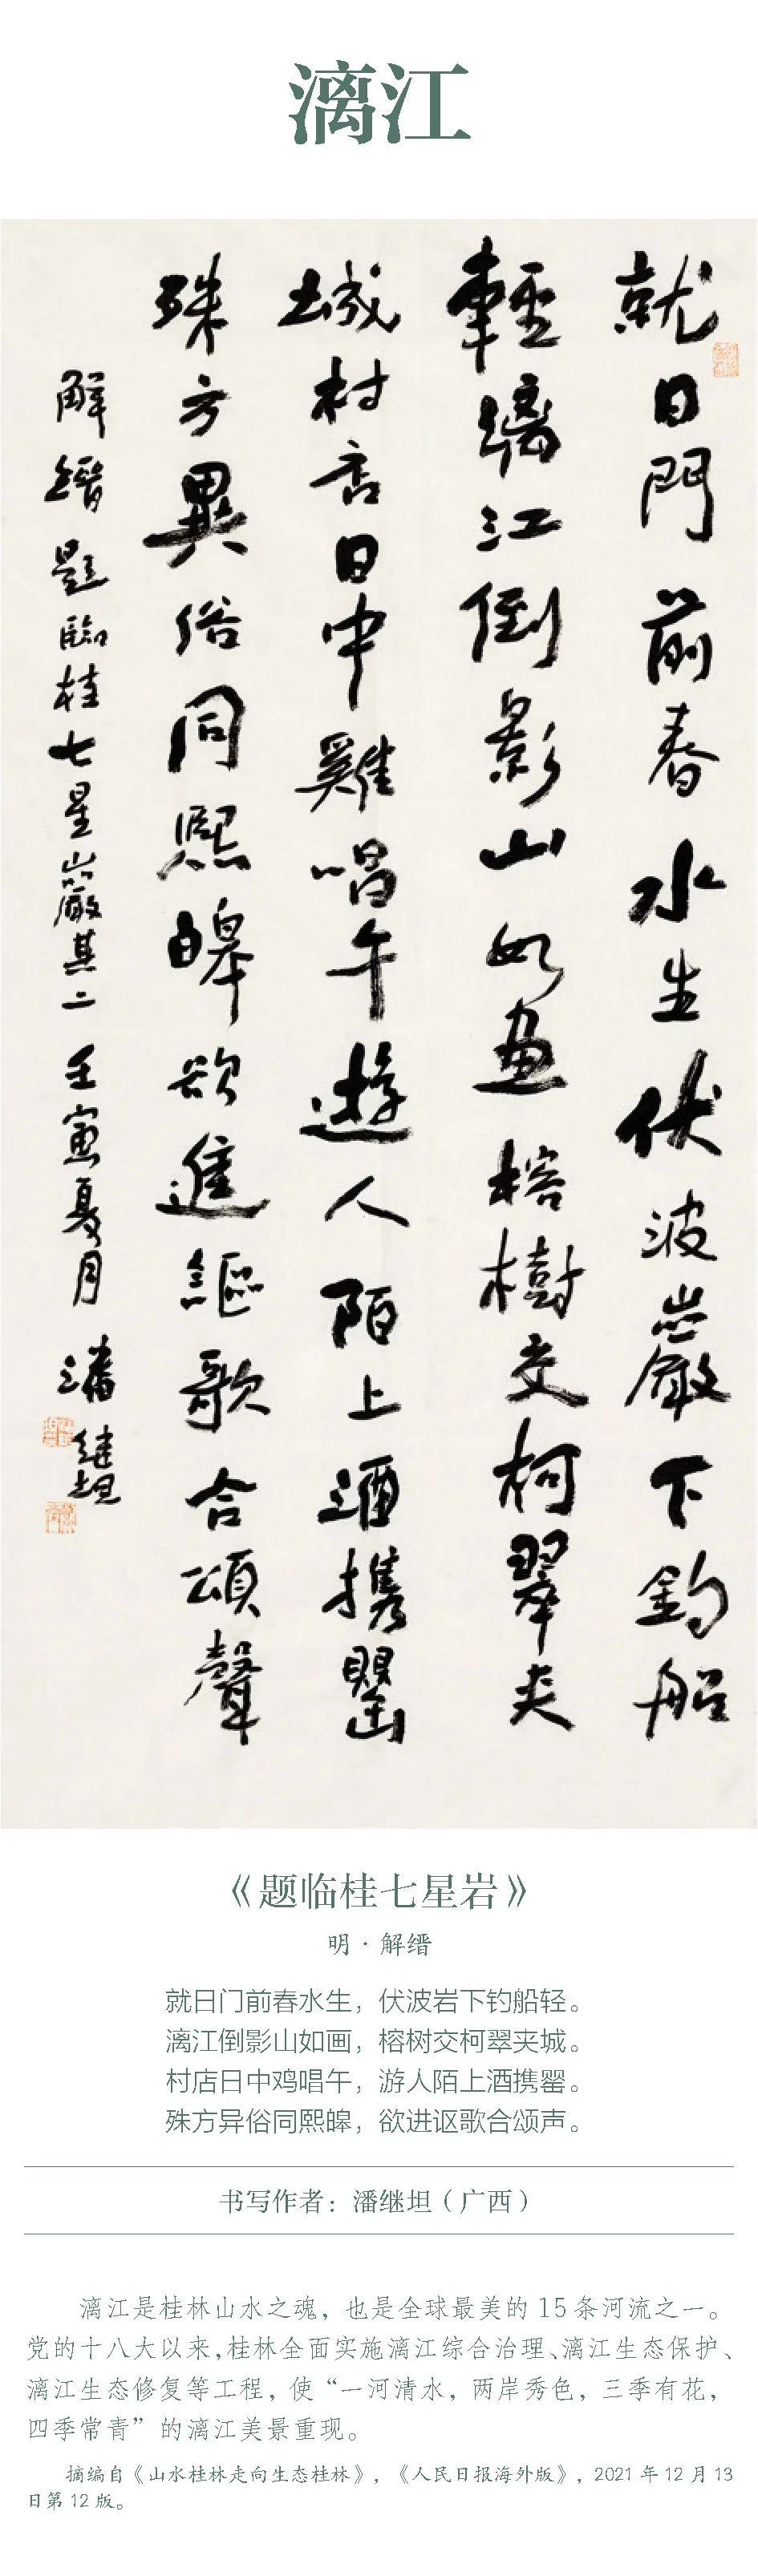 漓江
就日門前春水生伏波巖下釣船
輕漓江倒影山如畫榕樹交柯翠夹
城村店日中雞唱午遊人陌上酒攜罌
殊方異俗同熙皞欲進謳歌合頌聲
解缙題臨桂七星巖其二 壬寅夏月 潘继坦
《题临桂七星岩》
明·解缙
就日门前春水生，伏波岩下钓船轻。
漓江倒影山如画，榕树交柯翠夹城。
村店日中鸡唱午，游人陌上酒携罂。
殊方异俗同熙皞，欲进讴歌合颂声。
书写作者：潘继坦（广西）
漓江是桂林山水之魂，也是全球最美的 15 条河流之一。
党的十八大以来，桂林全面实施漓江综合治理、漓江生态保护、
漓江生态修复等工程，使“一河清水，两岸秀色，三季有花，
四季常青”的漓江美景重现。
摘编自《山水桂林走向生态桂林》，《人民日报海外版》，2021 年 12 月 13
日第 12 版。